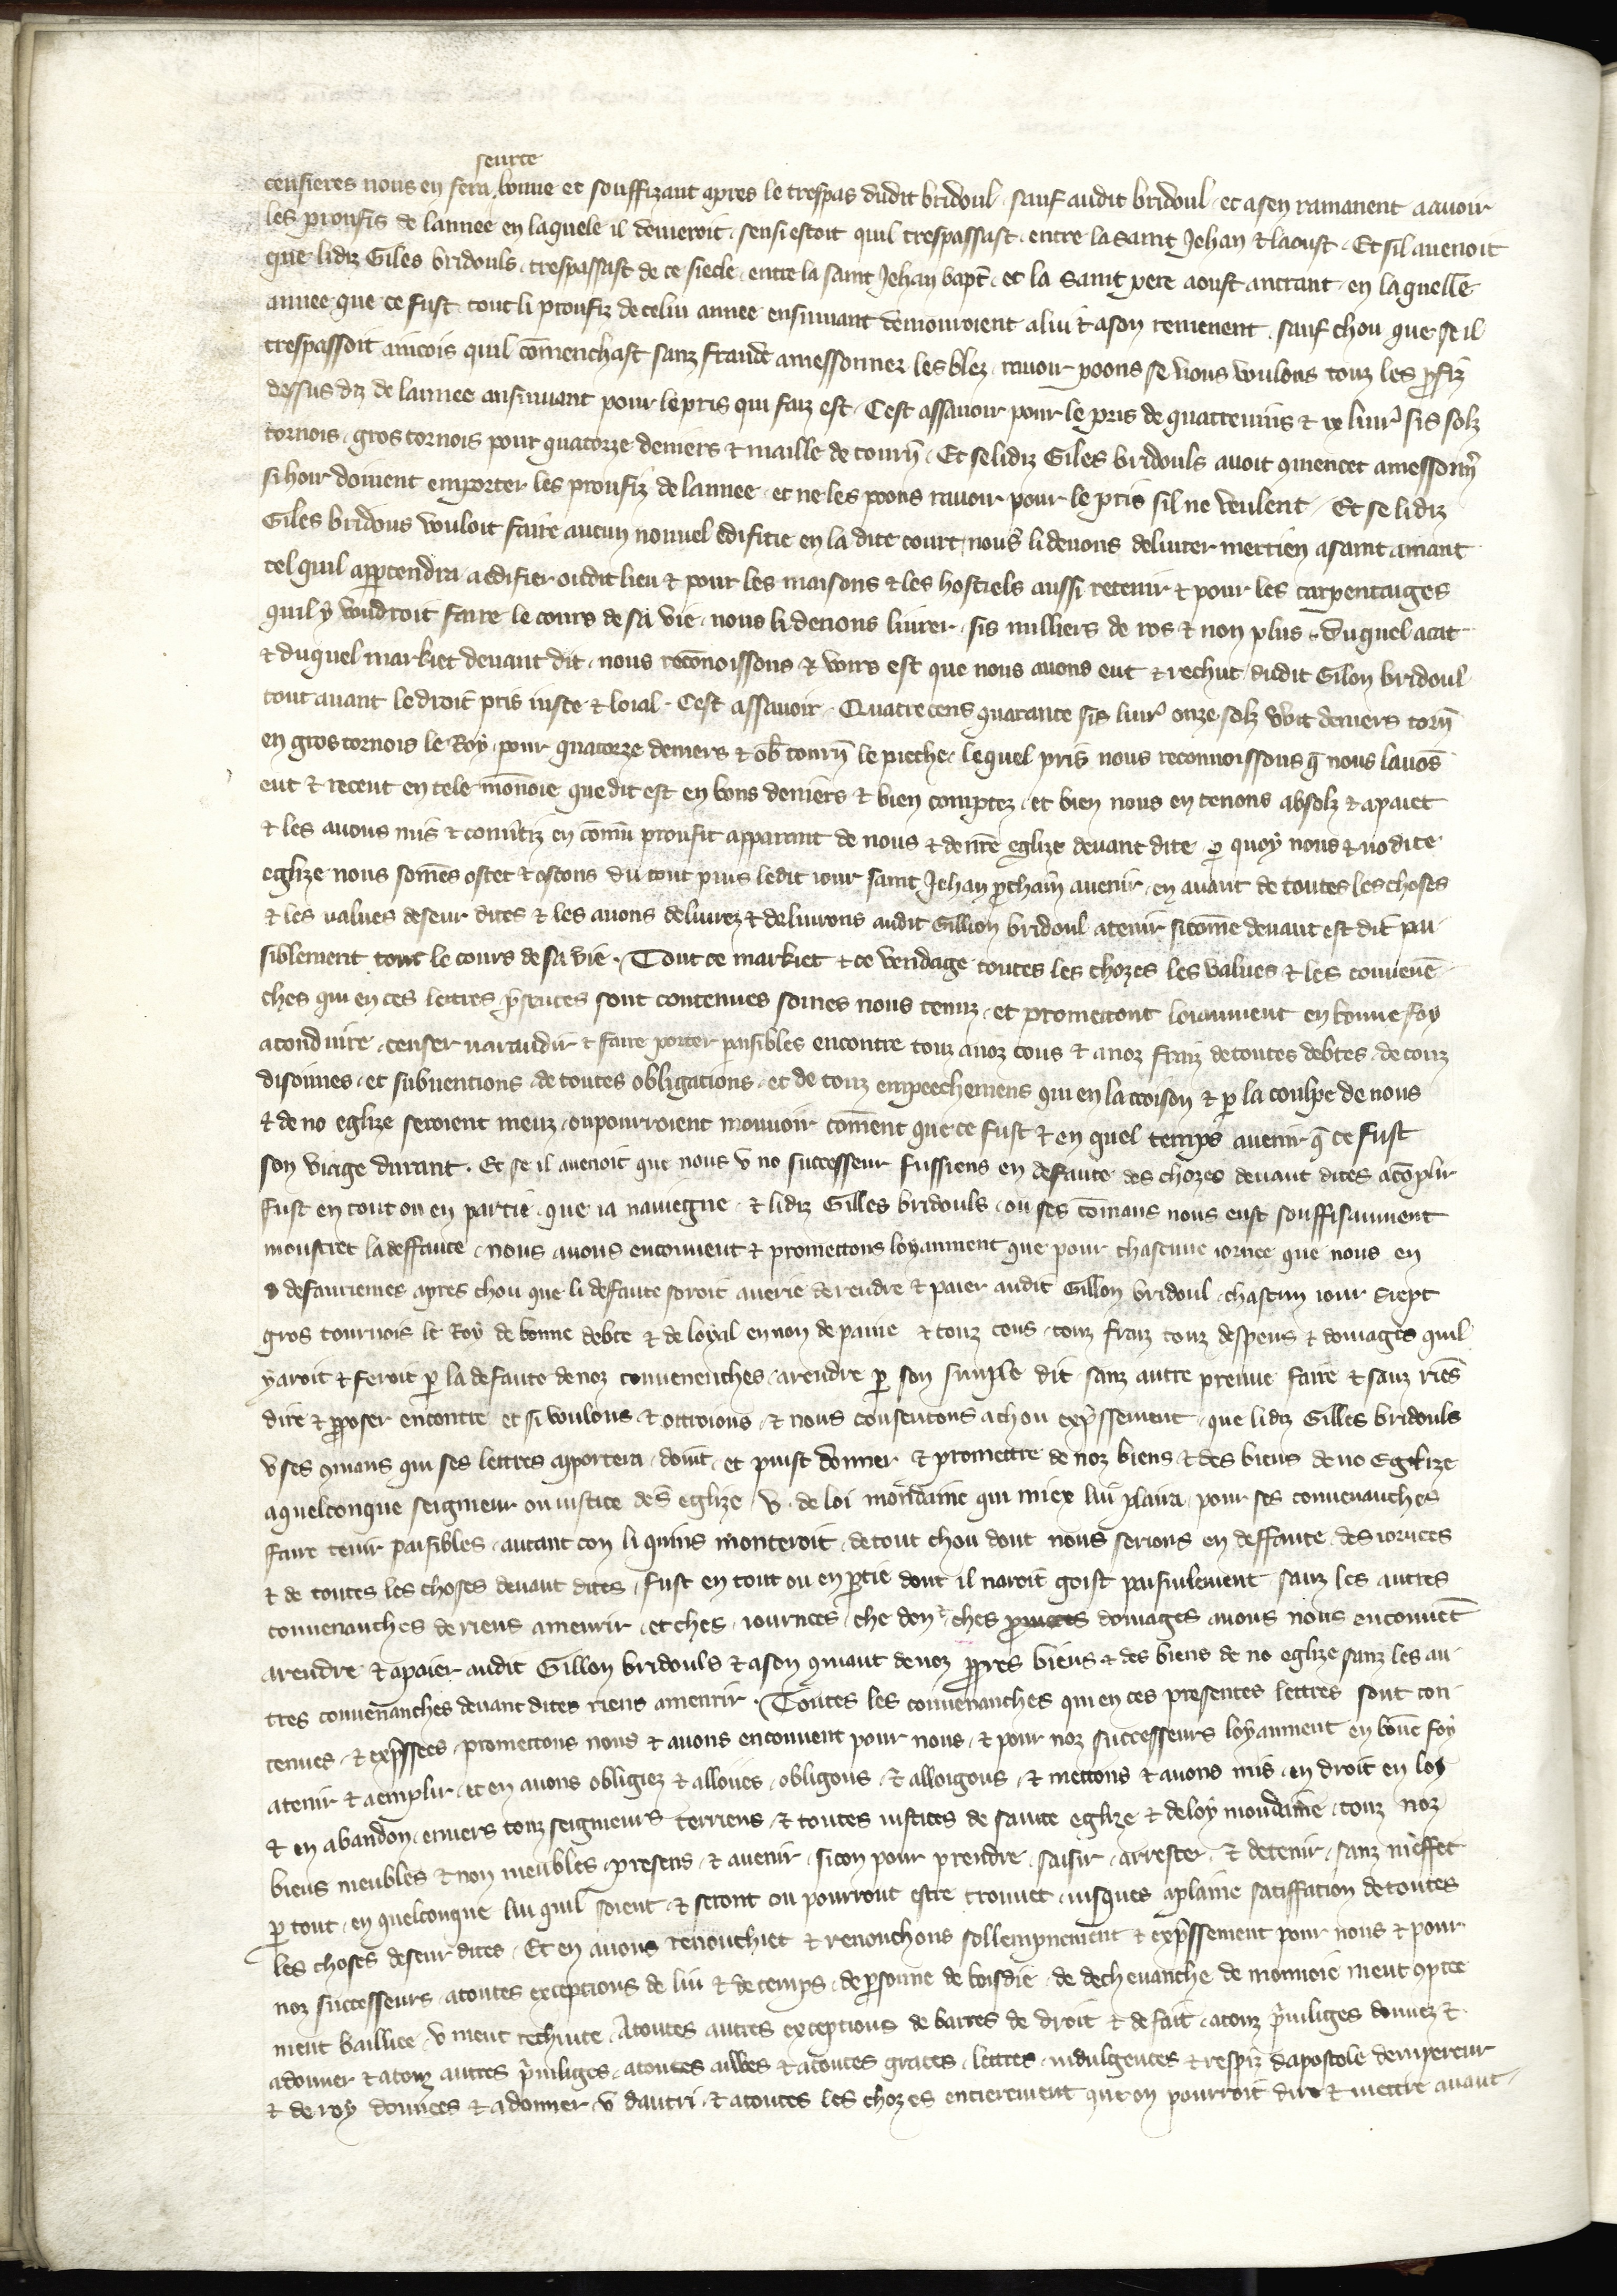 seurte
censieres nous en fera bonne et souffizant apres le trespas dudit bridoul . sauf audit bridoul . et a sen ramanent a avoir
les proufis de lannee en laquele il deuieroit . sensi estoit quil trespassast . entre la saint Jehan & laoust . Et sil auenoit
que lidiz Giles bridouls . trespassast de ce siecle . entre la saint Jehan bapt̄ . et la saint pere aoust antrant . en laquelle
annee que ce fust . tout li proufiz de celui annee ensiuuant demouroient a lui & a son remenent . sauf chou que se il
trespassoit aincois quil cōmenchast sanz fraude a messonner les blez . rauoir poons se nous voulons touz les ꝓfiz
dessus diz de lannee ansiuuant pour le pris qui faiz est . Cest assauoir pour le pris de quatreuins & x liur̄ sis solz
tornois . gros tornois pour quatorze deniers & maille de tourn̄ . Et se lidiz Giles bridouls auoit ꝯmencet a messonn̄
si hoir doiuent emporter les proufiz de lannee . et ne les poons rauoir pour le pris sil ne veulent . Et se lidiz
Giles bridous vouloit faire aucun nouuel edifitie en la dite court . nous li deuons deliurer merrien a saint amant
tel quil appertendra a edifier oudit lieu & pour les maisons & les hostiels aussi retenir & pour les carpentaiges
quil y voudroit faire le cours de sa vie . nous li deuons liurer . sis milliers de ros & non plus . Duquel acat
& duquel markiet deuant dit . nous recōnoissons & voirs est que nous auons eut & rechut dudit Gilon bridoul
tout auant le droit pris iuste & loial . Cest assauoir . Quatre cens quarante sis liur̄ onze solz wit deniers torn̄
en gros tornois le Roy . pour quatorze deniers & ob̄ tourn̄ le pieche . lequel pris nous reconnoissons q̄ nous lauōs
eut & receut en tele mōnoie que dit est en bons deniers & bien comptez . et bien nous en tenons absolz & apaiet
& les auons mis & conuertiz en cōmū proufit apparant de nous & de nr̄e eglize deuant dite . ꝑ quoy nous & no dite
eglize nous somēs ostet & ostons du tout puis ledit iour saint Jehan ꝓchain auenir . en auant de toutes les choses
& les values deseur dites & les auons deliurez & deliurons audit Gillion bridoul a tenir sicōme deuant est dit pai
siblement tout le cours de sa vie . Tout ce markiet & ce vendage toutes les chozes les values & les conuenē
ches qui en ces lettres p̄sentes sont contenues somes nous tenuz . et promettont loiaument en bonne foy
a conduire . tenser warandir & faire porter paisibles encontre touz a noz cous & a noz fraiz de toutes debtes . de touz
disoimes . et subuentions . de toutes obligations . et de touz empeechemens qui en la occoison & ꝑ la coulpe de nous
& de no eglize seroient meuz . ou pourroient mouuoir cōment que ce fust & en quel temps auenir q̄ ce fust
son viage durant . Et se il auenoit que nous v no successeur fussiens en defaute des chozes deuant dites acōplir
fust en tout ou en partie . que ia nauiegne . & lidiz Gilles bridouls . ou ses cōmans nous eust souffisaument
monstret la deffaute . nous auons enconuent & promettons loyaument que pour chascune iornee que nous en
defauriemes apres chou que li defaute seroit auerie de rendre & paier audit Gillon bridoul . chascun iour siept
gros tournois le Roy de bonne debte & de loyal en non de paine & touz cous . touz fraiz touz despens & domages quil
y aroit & feroit ꝑ la defaute de noz conuenenches . a rendre ꝑ son simple dit sanz autre preuue faire & sanz riēs
dire & ꝓposer encontre et si voulons & ottroions . & nous consentons a chou exp̄ssement . que lidiz Gilles bridouls
v ses ꝯmans qui ses lettres apportera . doinst . et puist donner & promettre de noz biens & des biens de no Eglize
a quelconque seigneur ou iustice de s̄ eglize . v . de loi mondaine qui miex lui plaira . pour ses conuenanches
faire tenir paisibles . autant con li quins monteroit . de tout chou dont nous serions en deffaute . des iornees
& de toutes les choses deuant dites . fust en tout ou en ꝑtie dont il naroit goist paisiulement . sanz les autres
conuenanches de riens amenrir . et ches . iournees . che don̄ . ches domages auons nous enconuēt
a rendre & a paier audit Gillon bridouls & a son ꝯmant de noz ꝓpres biens & des biens de no eglize sanz les au
tres conuenanches deuant dites riens amenrir . Toutes les conuenanches qui en ces presentes lettres sont con
tenues . & exp̄ssees . promettons nous & auons enconuent pour nous . & pour noz successeurs loyaument en bōne foy
a tenir & aemplir . et en auons obligiez & alloiiés . obligons . & alloigons . & mettons & auons mis . en droit en loi
& en abandon . enuers touz seigneurs terriens . & toutes iustices de sainte eglize & de loy mondaine . touz noz
biens meubles & non meubles . presens . & auenir . si con pour prendre . saisir . arrester . & detenir . sanz meffet
ꝑ tout . en quelconque liu quil soient . & seront ou pourront estre trouuet . iusques a plaine satiffation de toutes
les choses deseur dites . Et en auons renonchiet & renonchons sollempnement & exp̄ssement pour nous & pour
noz successeurs . a toutes exceptions de liu & de temps . de ꝑsonne de boisdie . de dechevanche de monnoie nient ꝯptee
nient bailliee . v nient rechiute . A toutes autres exceptions de barres de droit & de fait . a touz p̄uiliges donnez &
a donner & a touz autres p̄uiliges . a toutes aiuwes & a toutes graces . lettres . indulgences & respiz dapostole dempereur
& de roy donnees & a donner . v dautri . & a toutes les chozes entierement que on pourroit dire & mettre auant